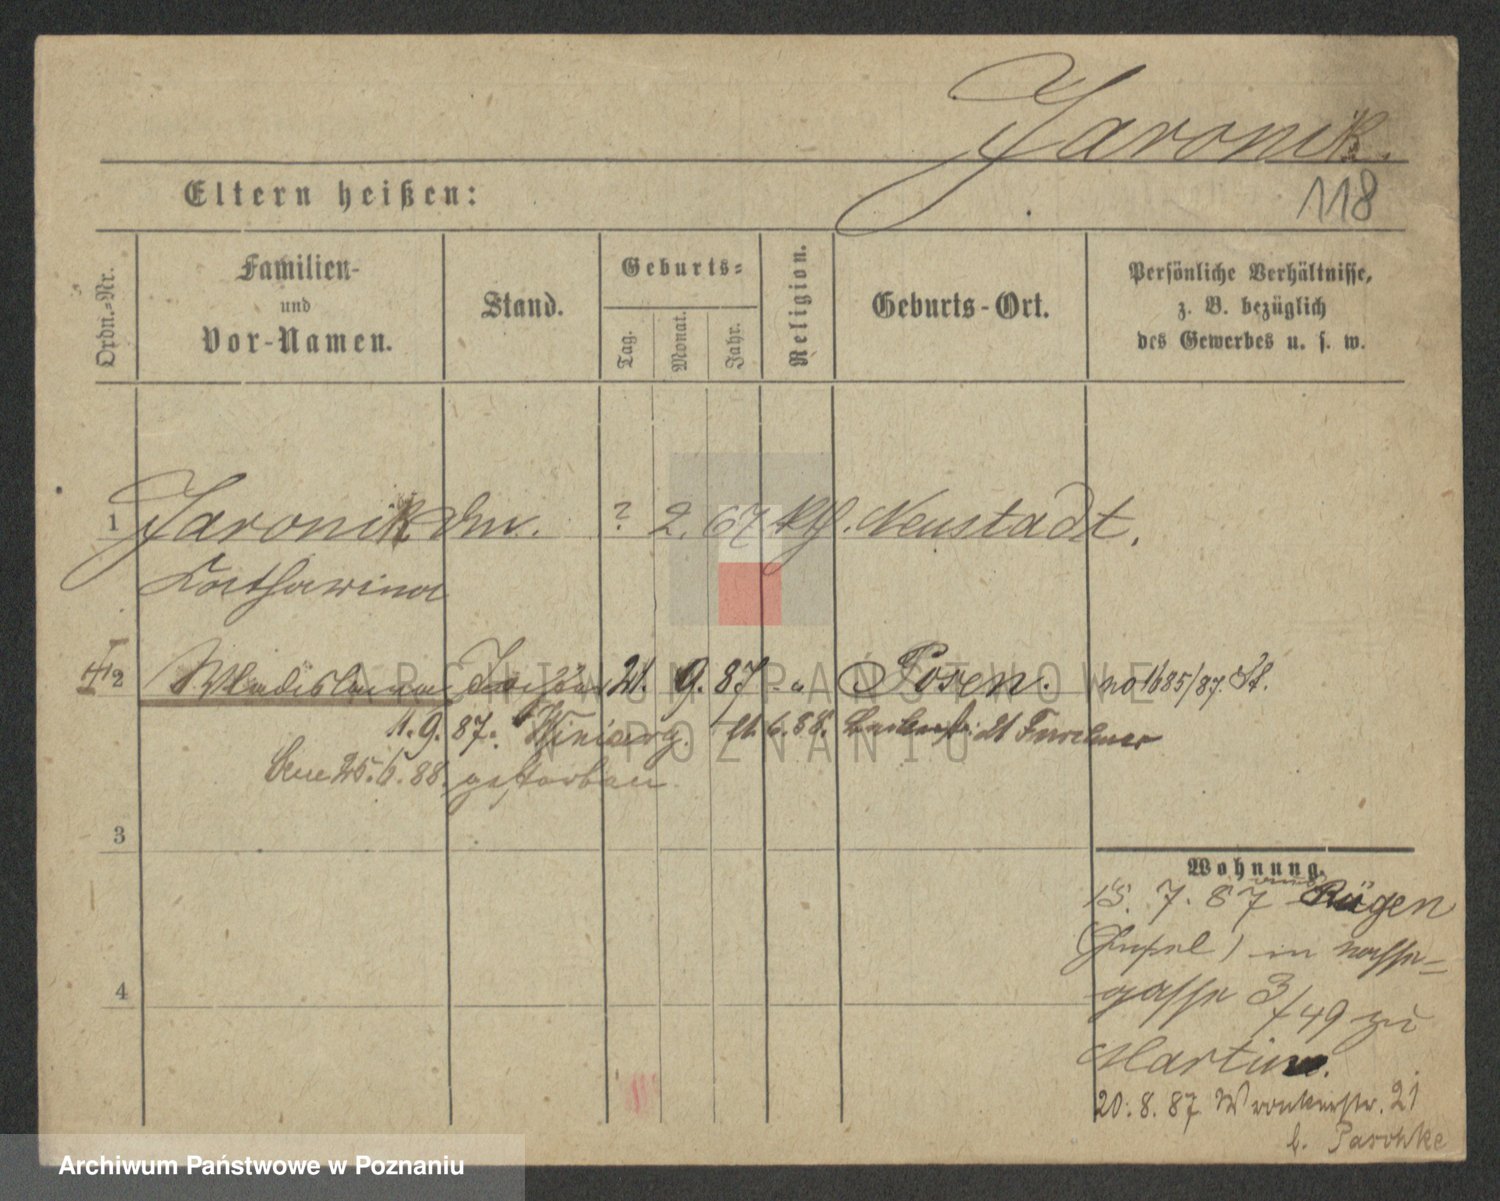 Jaronik.
118
Eltern heißen:
Ordn.-Nr.
Familien-
und
Vor-Namen.
Stand.
Geburts-
Tag.
Monat.
Jahr.
Religion.
Geburts-Ort.
Persönliche Verhältnisse,
z. B. bezüglich
des Gewerbes u. s. w.
1 Jaronik ? 2. 67 kth. Neustadt.
Catharina
2 Wladislawa Tochter 21. 9. 87 Posen. no 1685/87. St.
11. 9. 87. Winiary. 6. 88.
25. 6. 88. gestorben.
3
4
Wohnung.
15. 7. 87 Rügen
(Insel) in
gasse 3/49 zu
Martin.
20. 8. 87 Wronkerstr. 21
b. Paschke
ARCHIWUM PAŃSTWOWE
W POZNANIU
Archiwum Państwowe w Poznaniu